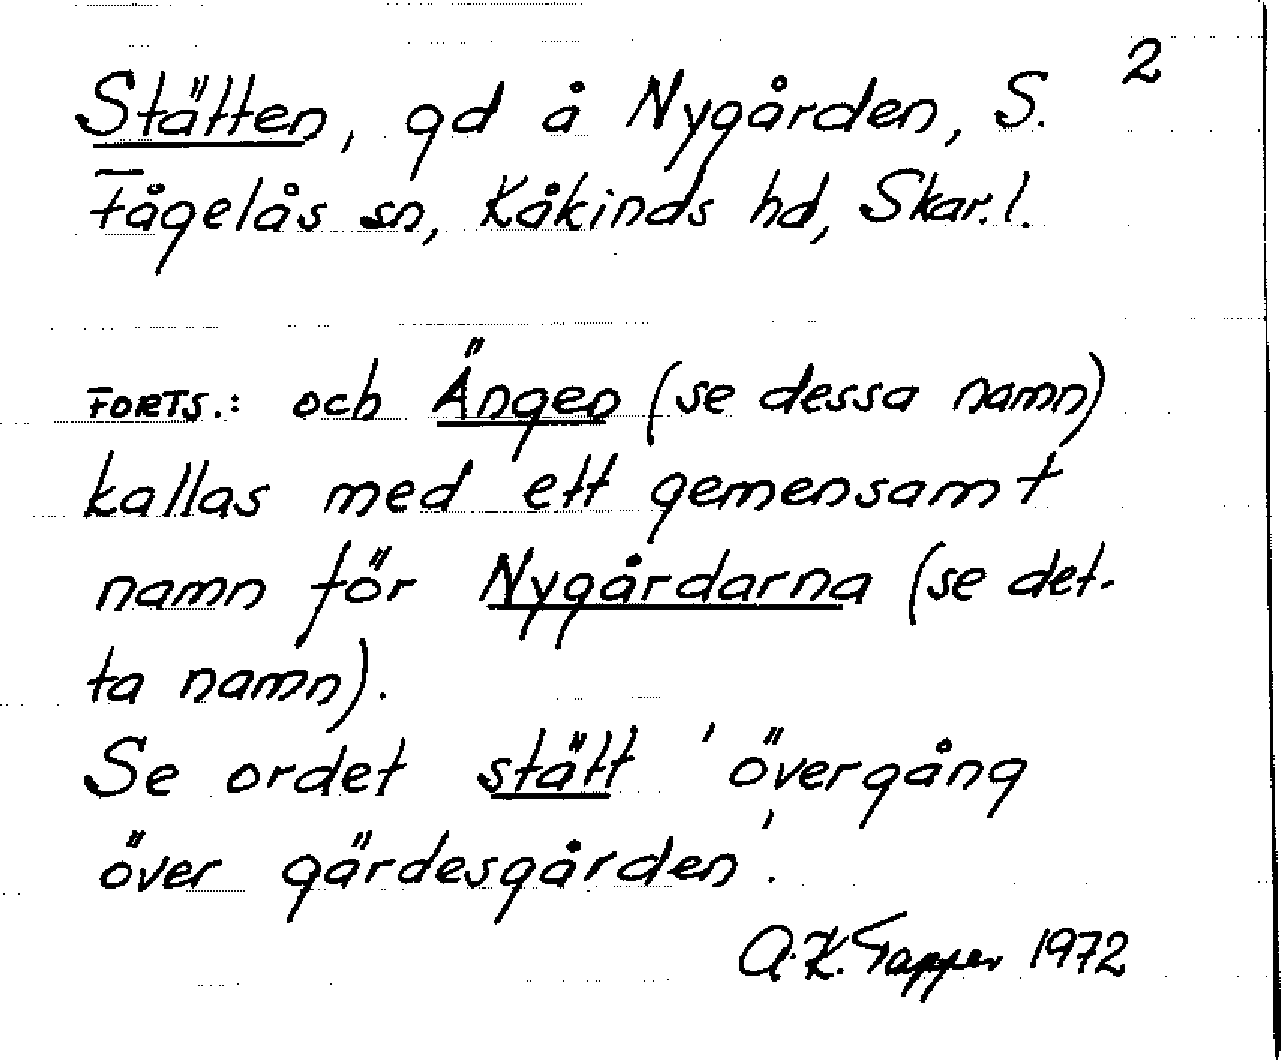 2
Stätten, gd å Nygården, S.
Fågelås sn, Kåkinds hd, Skar. l.
FORTS.: och Ängen (se dessa namn)
kallas med ett gemensamt
namn för Nygårdarna (se det-
ta namn).
Se ordet stätt 'övergång
över gärdesgården'.
A.K. Tapper 1972